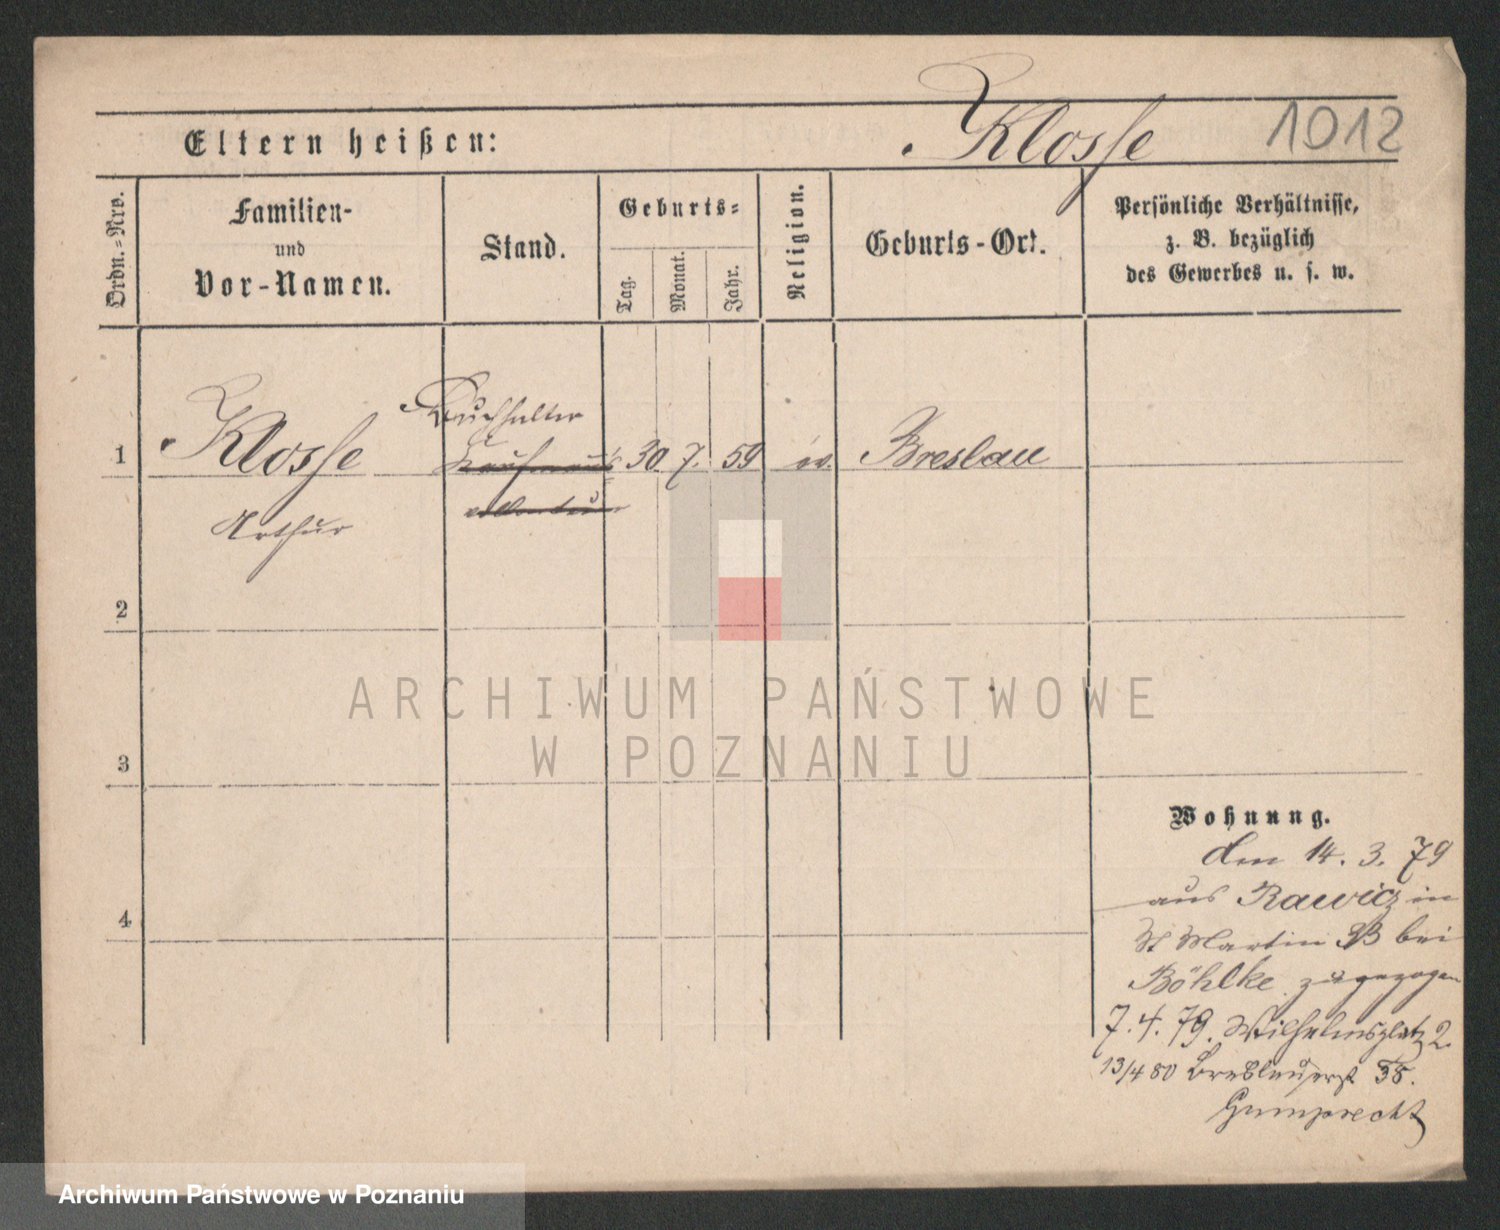 Klosse 1012
Eltern heißen:
Ordn.-Nro.
Familien-
und
Vor-Namen.
Stand.
Geburts-
Tag.
Monat.
Jahr.
Religion.
Geburts-Ort.
Persönliche Verhältnisse,
z. B. bezüglich
des Gewerbes u. s. w.
Buchhalter
1 Klosse 30. 7. 59 ev. Breslau
Arthur
2
3
4
Wohnung.
den 14. 3. 79
aus Rawicz in
St Martin bei
Böhlke zugezogen
7. 4. 79. Wilhelmsplatz 2.
13/4 80 Breslauerst 38.
Gumprecht
ARCHIWUM PAŃSTWOWE
W POZNANIU
Archiwum Państwowe w Poznaniu